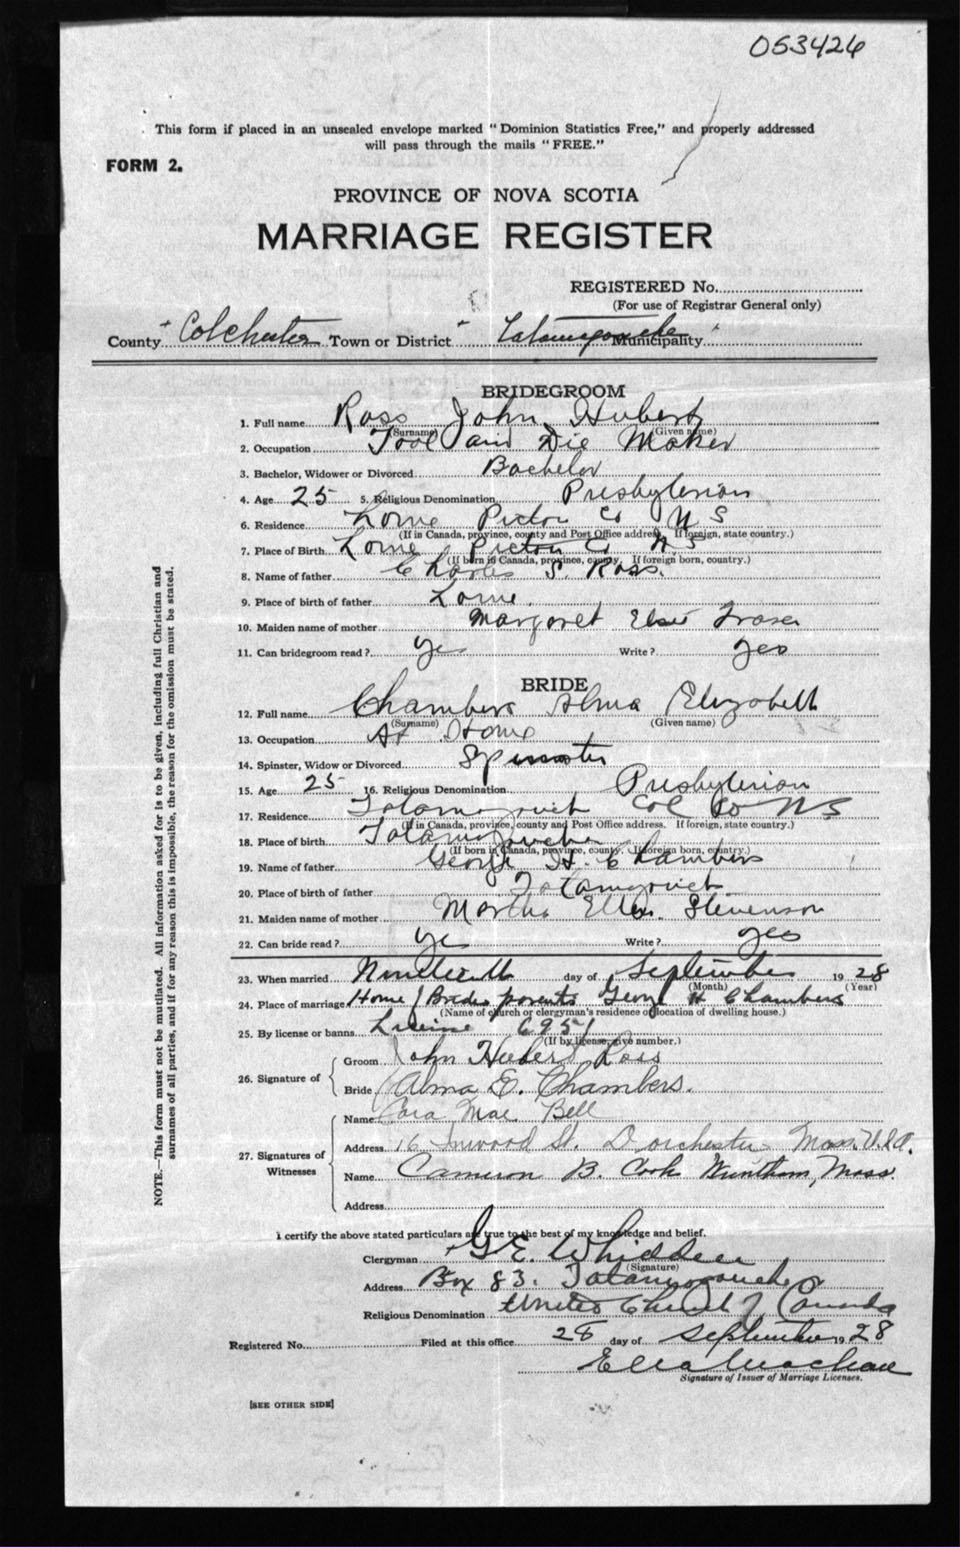 053426
This form if placed in an unsealed envelope marked "Dominion Statistics Free," and properly addressed
will pass through the mails "FREE."
FORM 2.
PROVINCE OF NOVA SCOTIA
MARRIAGE REGISTER
REGISTERED No.
(For use of Registrar General only)
County Colchester Town or District Tatamagouche Municipality
BRIDEGROOM
1. Full name Ross John Hubert
(Surname) (Given name)
2. Occupation Tool and Die Maker
3. Bachelor, Widower or Divorced Bachelor
4. Age 25 5. Religious Denomination Presbyterian
6. Residence Lorne Pictou Co N S
(If in Canada, province, county and Post Office address. If foreign, state country.)
7. Place of Birth Lorne Pictou Co N. S
(If born in Canada, province, county. If foreign born, country.)
8. Name of father Charles S. Ross.
9. Place of birth of father Lorne.
10. Maiden name of mother Margaret Elsie Fraser
11. Can bridegroom read? yes Write? yes
BRIDE
12. Full name Chambers Alma Elizabeth
(Surname) (Given name)
13. Occupation At Home
14. Spinster, Widow or Divorced Spinster
15. Age 25 16. Religious Denomination Presbyterian
17. Residence Tatamagouche Col Co N S
(If in Canada, province, county and Post Office address. If foreign, state country.)
18. Place of birth Tatamagouche
(If born in Canada, province, county. If foreign born, country.)
19. Name of father George H. Chambers
20. Place of birth of father Tatamagouche
21. Maiden name of mother Martha Ellen Stevenson
22. Can bride read? yes Write? yes
23. When married Nineteenth day of September 19 28
(Month) (Year)
24. Place of marriage Home of Brides parents George H Chambers
(Name of church or clergyman's residence or location of dwelling house.)
25. By license or banns License 6951
(If by license, give number.)
26. Signature of
Groom John Hubert Ross
Bride Alma E. Chambers.
27. Signatures of Witnesses
Name Cora Mae Bell
Address 16 Inwood St. Dorchester Mass. U.S.A.
Name Cameron B. Cook Wrentham, Mass.
Address
I certify the above stated particulars are true to the best of my knowledge and belief.
Clergyman G E. Whidden
(Signature)
Address Box 83. Tatamagouche
Religious Denomination United Church of Canada
Registered No. Filed at this office 28 day of September 19 28
Signature of Issuer of Marriage Licenses.
[SEE OTHER SIDE]
NOTE.—This form must not be mutilated. All information asked for is to be given, including full Christian and
surnames of all parties, and if for any reason this is impossible, the reason for the omission must be stated.